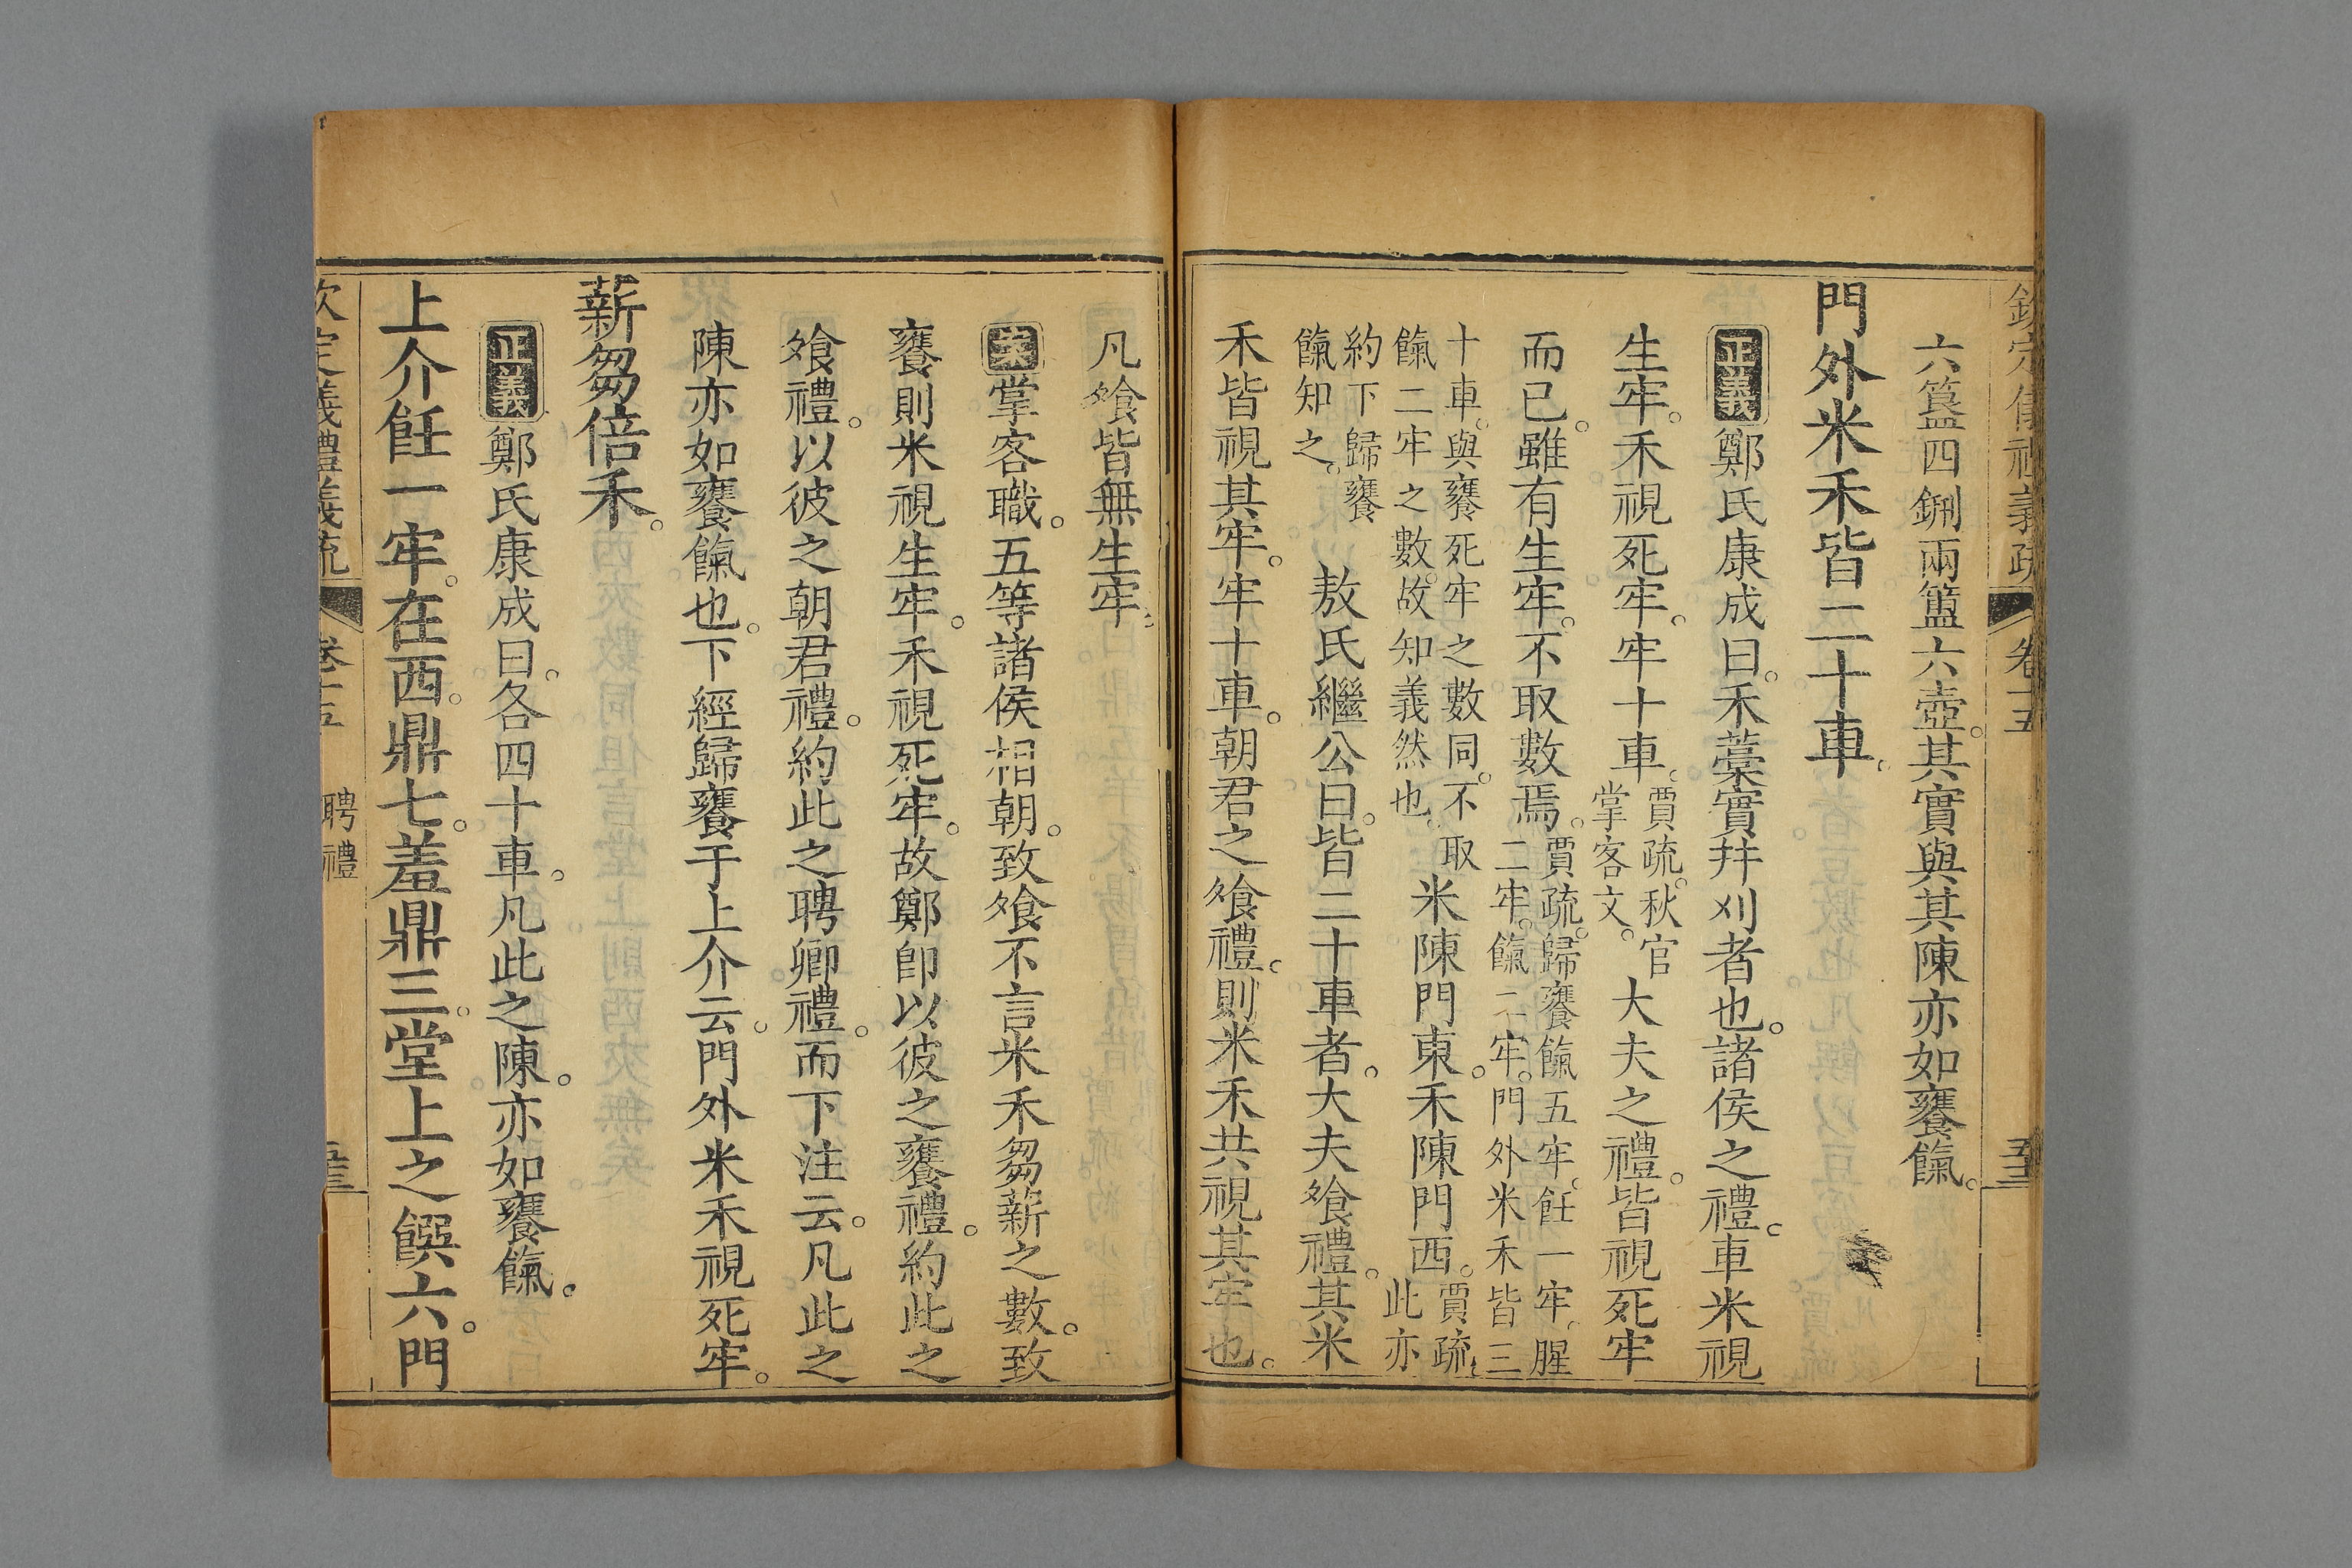 欽定儀禮義疏 卷十五
六簋四鉶兩簠六壺。其實與其陳亦如饔餼。
門外米禾皆二十車。
正義鄭氏康成曰。禾藁實幷刈者也。諸侯之禮。車米視
生牢。禾視死牢。牢十車。賈疏。秋官掌客文。大夫之禮。皆視死牢
而已。雖有生牢。不取數焉。賈疏。歸饔餼五牢。飪一牢。腥二牢。餼二牢。門外米禾皆三
十車。與饔死牢之數同。不取餼二牢之數。故知義然也。米陳門東。禾陳門西。賈疏。此亦
約下歸饔餼知之。敖氏繼公曰。皆二十車者。大夫飧禮。其米
禾皆視其牢。牢十車。朝君之飧禮。則米禾共視其牢也。
凡飧皆無生牢。
案掌客職。五等諸侯相朝。致飧不言米禾芻薪之數。致
饔則米視生牢。禾視死牢。故鄭卽以彼之饔禮。約此之
飧禮。以彼之朝君禮。約此之聘卿禮。而下注云。凡此之
陳亦如饔餼也。下經歸饔于上介云。門外米禾視死牢。
薪芻倍禾。
正義鄭氏康成曰。各四十車。凡此之陳。亦如饔餼。
上介飪一牢。在西。鼎七。羞鼎三。堂上之饌六。門
欽定儀禮義疏 卷十五 聘禮